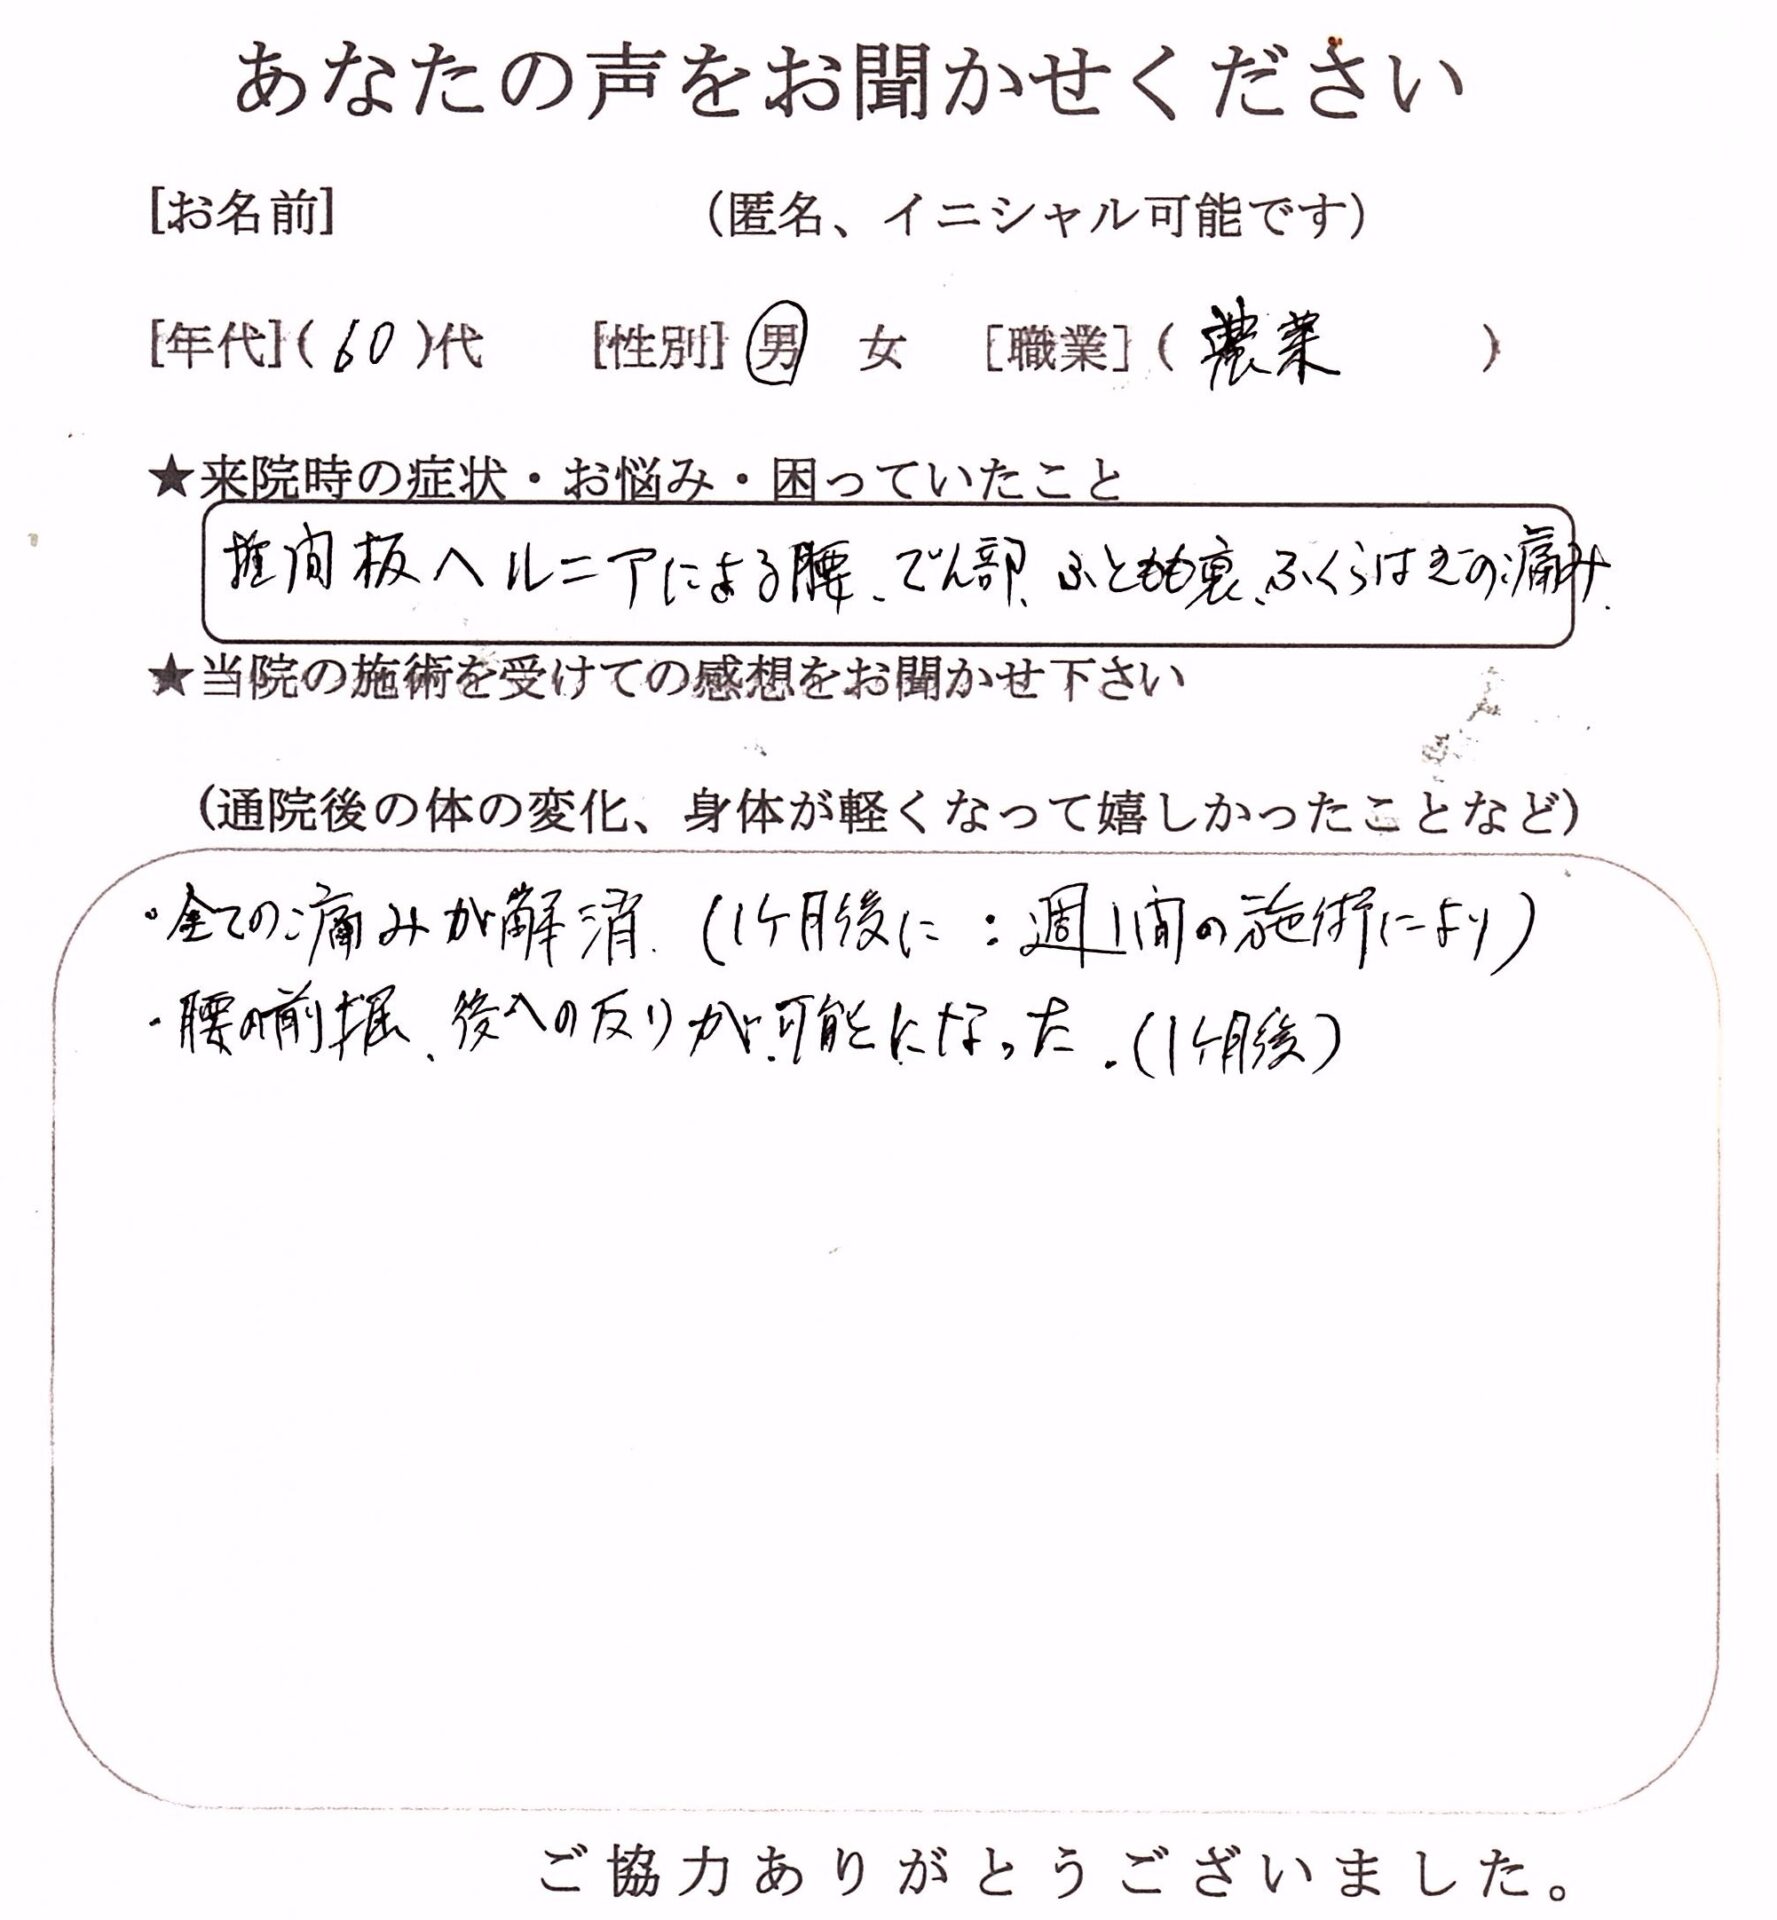 あなたの声をお聞かせください
[お名前] （匿名、イニシャル可能です）
[年代]( 60 )代 [性別] 男 女 [職業] ( 農業 )
★来院時の症状・お悩み・困っていたこと
椎間板ヘルニアによる腰、でん部、ふともも裏、ふくらはぎの痛み.
★当院の施術を受けての感想をお聞かせ下さい
（通院後の体の変化、身体が軽くなって嬉しかったことなど）
・全ての痛みが解消.（1ヶ月後に：週1間の施術により）
・腰の前掘、後へのそりが可能になった.（1ヶ月後）
ご協力ありがとうございました。